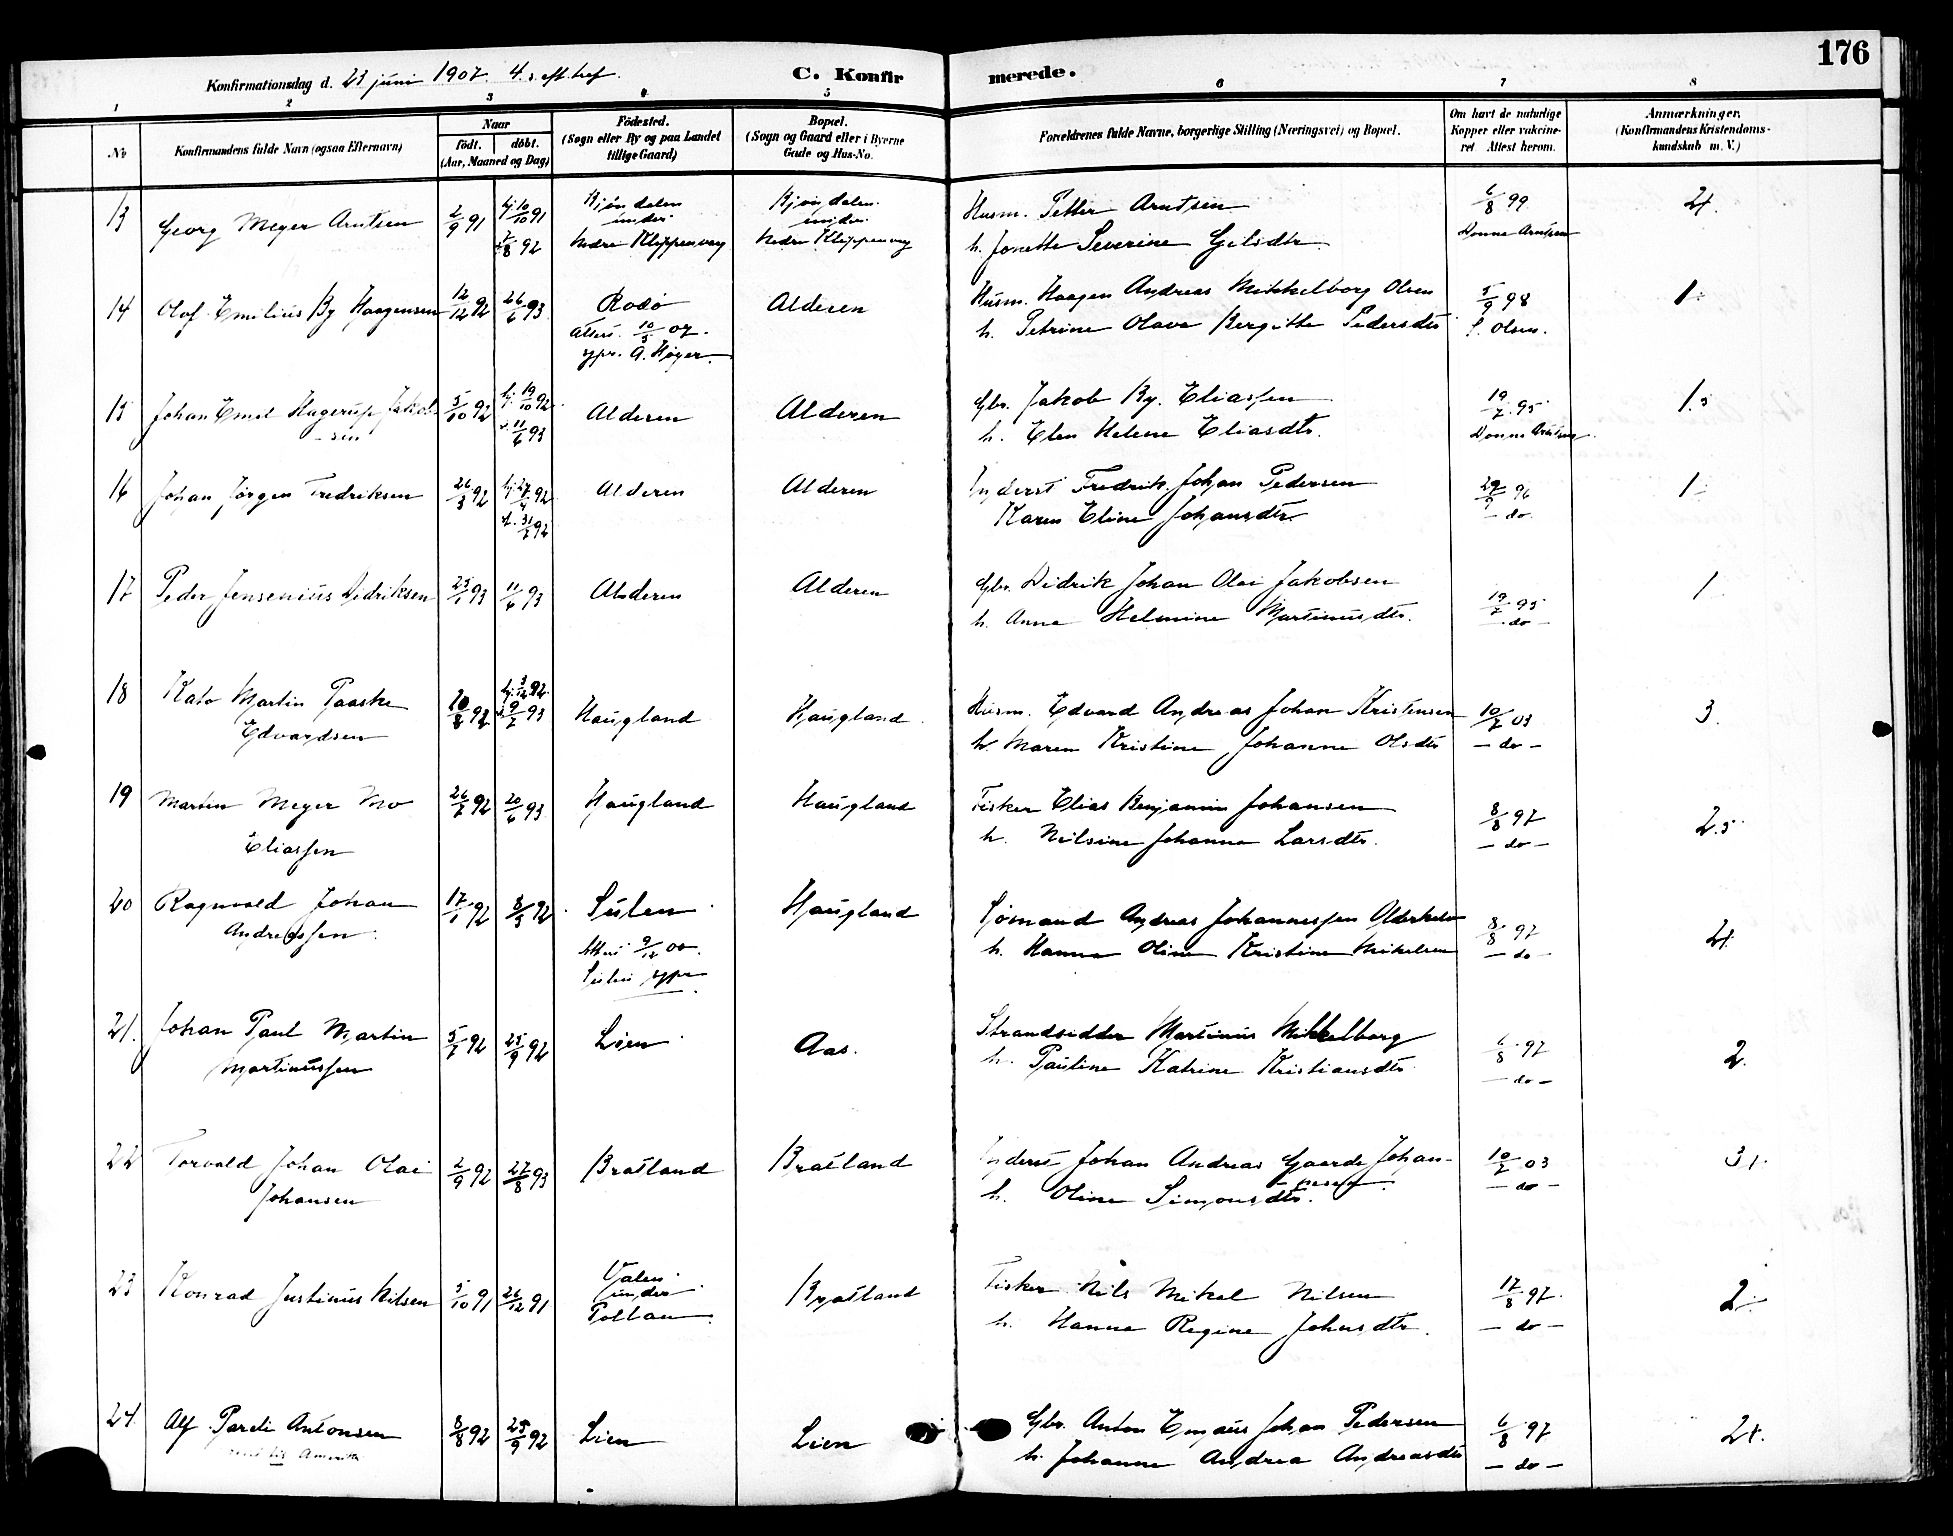 176
Konfirmationsdag d. 23 juni 1907. 4. s. eft. tref.
C. Konfirmerede.
1 2 3 4 5 6 7 8
No
Konfirmandens fulde Navn (ogsaa Efternavn)
Naar
født. døbt.
(Aar, Maaned og Dag)
Fødested.
(Sogn eller By og paa Landet
tillige Gaard)
Bopæl.
(Sogn og Gaard eller i Byerne
Gade og Hus-No.
Forældrenes fulde Navne, borgerlige Stilling (Næringsvei) og Bopæl.
Om havt de naturlige
Kopper eller vakcine-
ret Attest herom.
Anmærkninger,
(Konfirmandens Kristendoms-
kundskab m. V.)
13 Georg Meyer Arntsen 2/9 91 hj. 10/10 91
7/8 92
Bjøndalen
under
Nedre Klippenvaag
Bjøndalen
under
Nedre Klippenvaag
Husm. Petter Arntsen
h. Jonette Severine Gilsdtr.
6/8 99
Donna Arntsen
2
14 Olof Emilius By Haagensen 12/12 92 26/6 93 Rødø
Attest. 10/5 07.
A. Høyer.
Alderen
Husm. Haagen Andreas Mikkelborg Olsen
h. Petrine Olava Bergitte Pedersdtr
5/9 98
S. Olsen.
1
15 Johan Emil Hagerup Jakob-
-sen
5/10 92 hj. 19/10 92.
11/6 93
Alderen Alderen
Gbr. Jakob By. Eliassen
h. Elen Helene Eliasdtr.
19/7 95
Donna Arntsen
1.5
16 Johan Jørgen Fredriksen 26/3 92 hj. 27/4 92
31/7 92
Alderen Alderen
Inderst Fredrik Johan Pedersen
Karen Eline Johansdtr.
29/9 96
- do.
1
17 Peder Jensenius Didriksen 25/1 93 11/6 93 Alderen Alderen
Gbr. Didrik Johan Olai Jakobsen
h. Anna Helmine Martinusdtr.
19/7 95
- do -
1
18 Kato Martin Paaske
Edvardsen
10/8 92 hj. 3/12 92.
9/7 93
Haugland Haugland
Husm. Edvard Andreas Johan Kristensen
h. Maren Kristine Johanne Olsdtr
10/7 03
- do -
3.
19 Martin Meyer Mo
Eliassen
26/7 92 20/6 93 Haugland Haugland
Fisker Elias Benjamin Johansen
h. Nilsine Johanna Larsdtr.
8/8 97
- do -
2.5
20 Ragnvald Johan
Andreassen.
17/1 92 8/5 92 Sulen
Attest 9/12 00.
Haugland
Sømand Andreas Johannessen
h. Hanna Oline Kristine Mikelsen
8/8 97
- do -
2
21. Johan Paul Martin
Martinussen
5/7 92 25/9 92 Lien Aas.
Strandsidder Martinus Mikkelborg
h. Pauline Katrine Kristiansdtr
6/8 97
- do -
2.
22 Torvald Johan Olai
Johansen
2/9 92 27/8 93 Bratland Bratland
Inderst Johan Andreas Gaarde Johan-
h. Oline Simonsdtr.
10/7 03
- do -
3
23 Konrad Justinus Nilsen 5/10 91 26/12 91 Valen
under
Bratland
Fisker Nils Mikal Nilsen
h. Hanna Regine Johnsdtr.
17/8 97.
- do -
2
24 Alf Pareli Antonsen
8/8 92 25/9 92 Lien Lien
Gbr. Anton Johan Pedersen
h. Johanne Andrea Andreasdtr
6/8 97
- do -
2